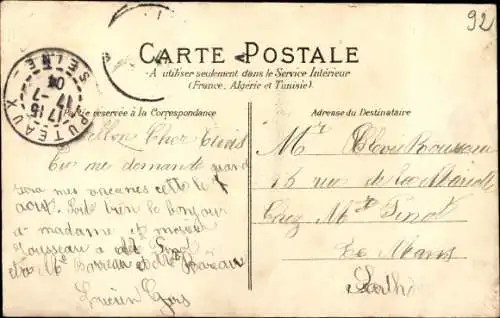 92
CARTE POSTALE
A utiliser seulement dans le Service Intérieur
(France, Algérie et Tunisie).
PUTEAUX SEINE
17 15
17-7
04
Partie réservée à la Correspondance
Adresse du Destinataire
Mon Cher
Tu me demande quand
sera mes vacances cette le 1
aout. Soit bien le bonjour
a madame et
Rousseau a
et a Mr Barreau et Mme Bareau
Lucien
Mr Rousseau
15 rue de la
Chez Mr Pinot
Le Mans
Sarthe